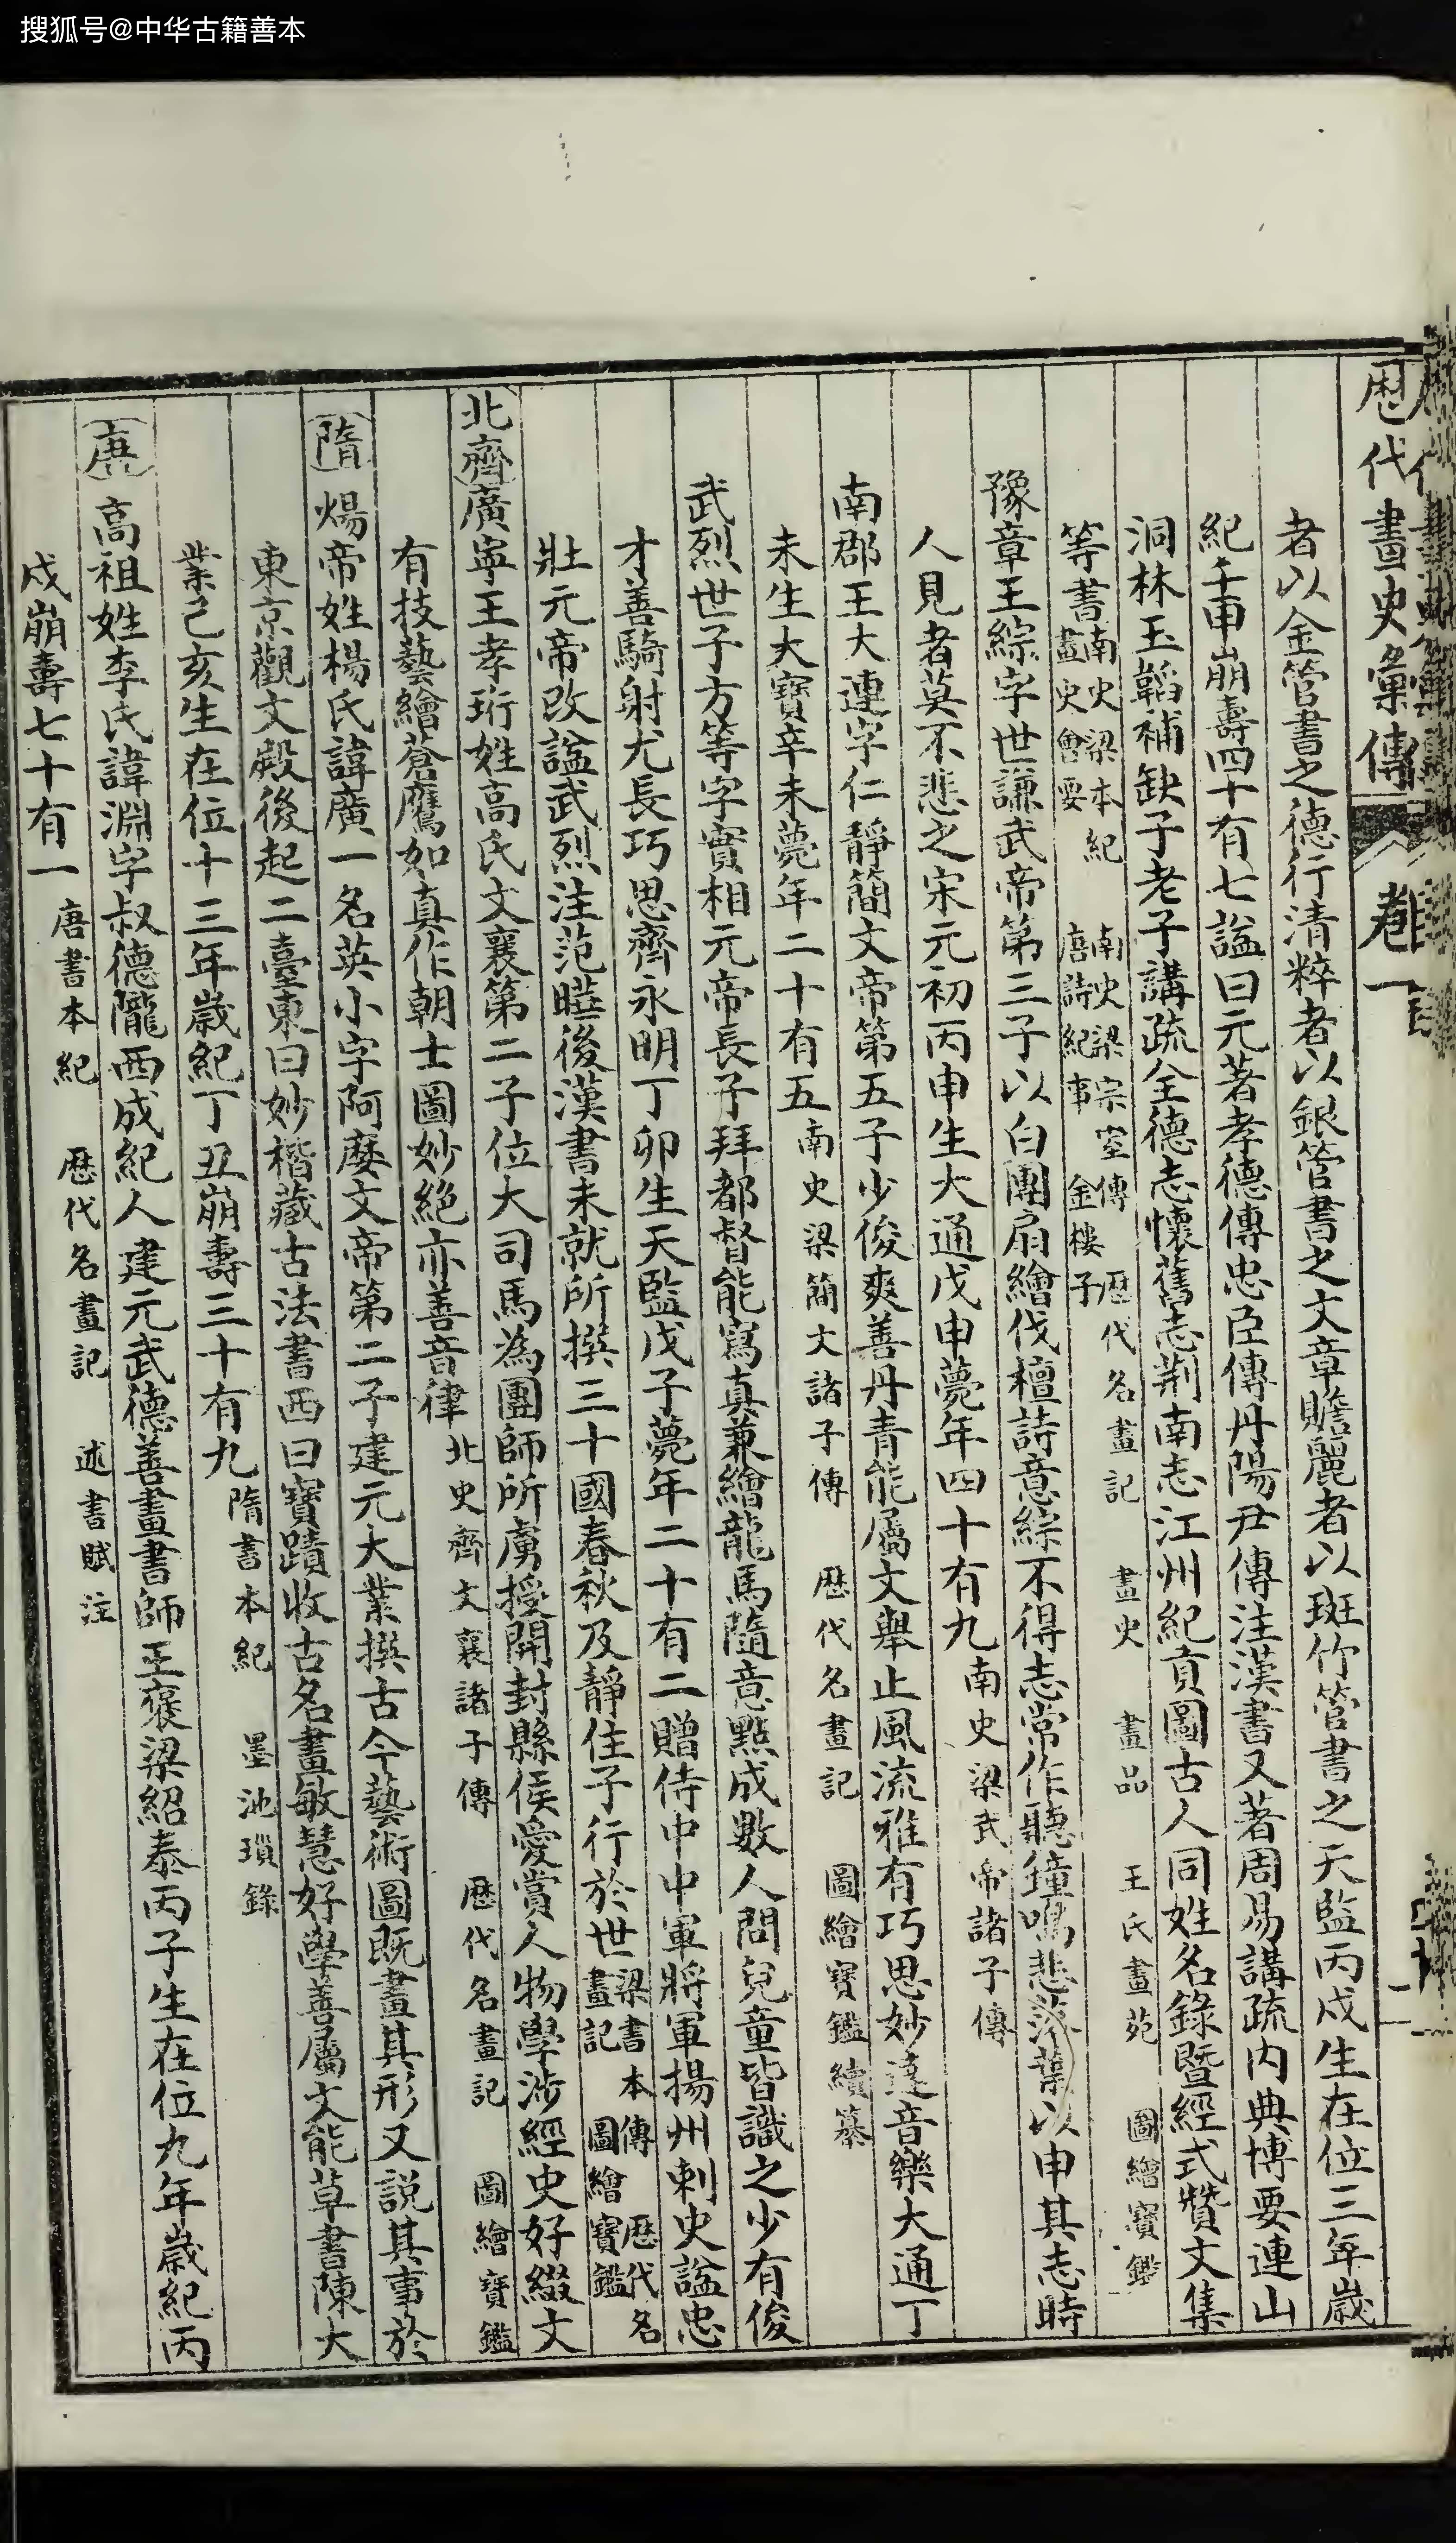 搜狐号@中华古籍善本
歷代畫史彙傳 卷一
者以金管書之德行清粹者以銀管書之文章贍麗者以斑竹管書之天監丙戌生在位三年歲
紀壬申崩壽四十有七諡曰元著孝德傳忠臣傳丹陽尹傳注漢書又著周易講疏內典博要連山
洞林玉韜補缺子老子講疏全德志懷舊志荆南志江州紀貢圖古人同姓名錄暨經式贊文集
等書南史梁本紀 南史梁宗室傳 歷代名畫記 畫史 畫品 王氏畫苑 圖繪寶鑑
畫史會要 唐詩紀事 金樓子
豫章王綜字世謙武帝第三子以白團扇繪伐檀詩意綜不得志常作聽鐘鳴悲落葉以申其志時
人見者莫不悲之宋元初丙申生大通戊申薨年四十有九南史梁武帝諸子傳
南郡王大連字仁靜簡文帝第五子少俊爽善丹青能屬文舉止風流雅有巧思妙達音樂大通丁
未生大寶辛未薨年二十有五南史梁簡文諸子傳 歷代名畫記 圖繪寶鑑續纂
武烈世子方等字實相元帝長子拜都督能寫真兼繪龍馬隨意點成數人問兒童皆識之少有俊
才善騎射尤長巧思齊永明丁卯生天監戊子薨年二十有二贈侍中中軍將軍揚州刺史諡忠
壯元帝改諡武烈注范曄後漢書未就所撰三十國春秋及靜住子行於世梁書本傳 歷代名
畫記 圖繪寶鑑
北齊廣寧王孝珩姓高氏文襄第二子位大司馬為團師所虜授開封縣侯愛賞人物學涉經史好綴文
有技藝繪蒼鷹如真作朝士圖妙絕亦善音律北史齊文襄諸子傳 歷代名畫記 圖繪寶鑑
隋 煬帝姓楊氏諱廣一名英小字阿䴢文帝第二子建元大業撰古今藝術圖既畫其形又說其事於
東京觀文殿後起二臺東曰妙楷藏古法書西曰寶蹟收古名畫敏慧好學善屬文能草書陳大
業己亥生在位十三年歲紀丁丑崩壽三十有九隋書本紀 墨池瑣錄
唐 高祖姓李氏諱淵字叔德隴西成紀人建元武德善畫書師王褒梁紹泰丙子生在位九年歲紀丙
戌崩壽七十有一唐書本紀 歷代名畫記 述書賦注